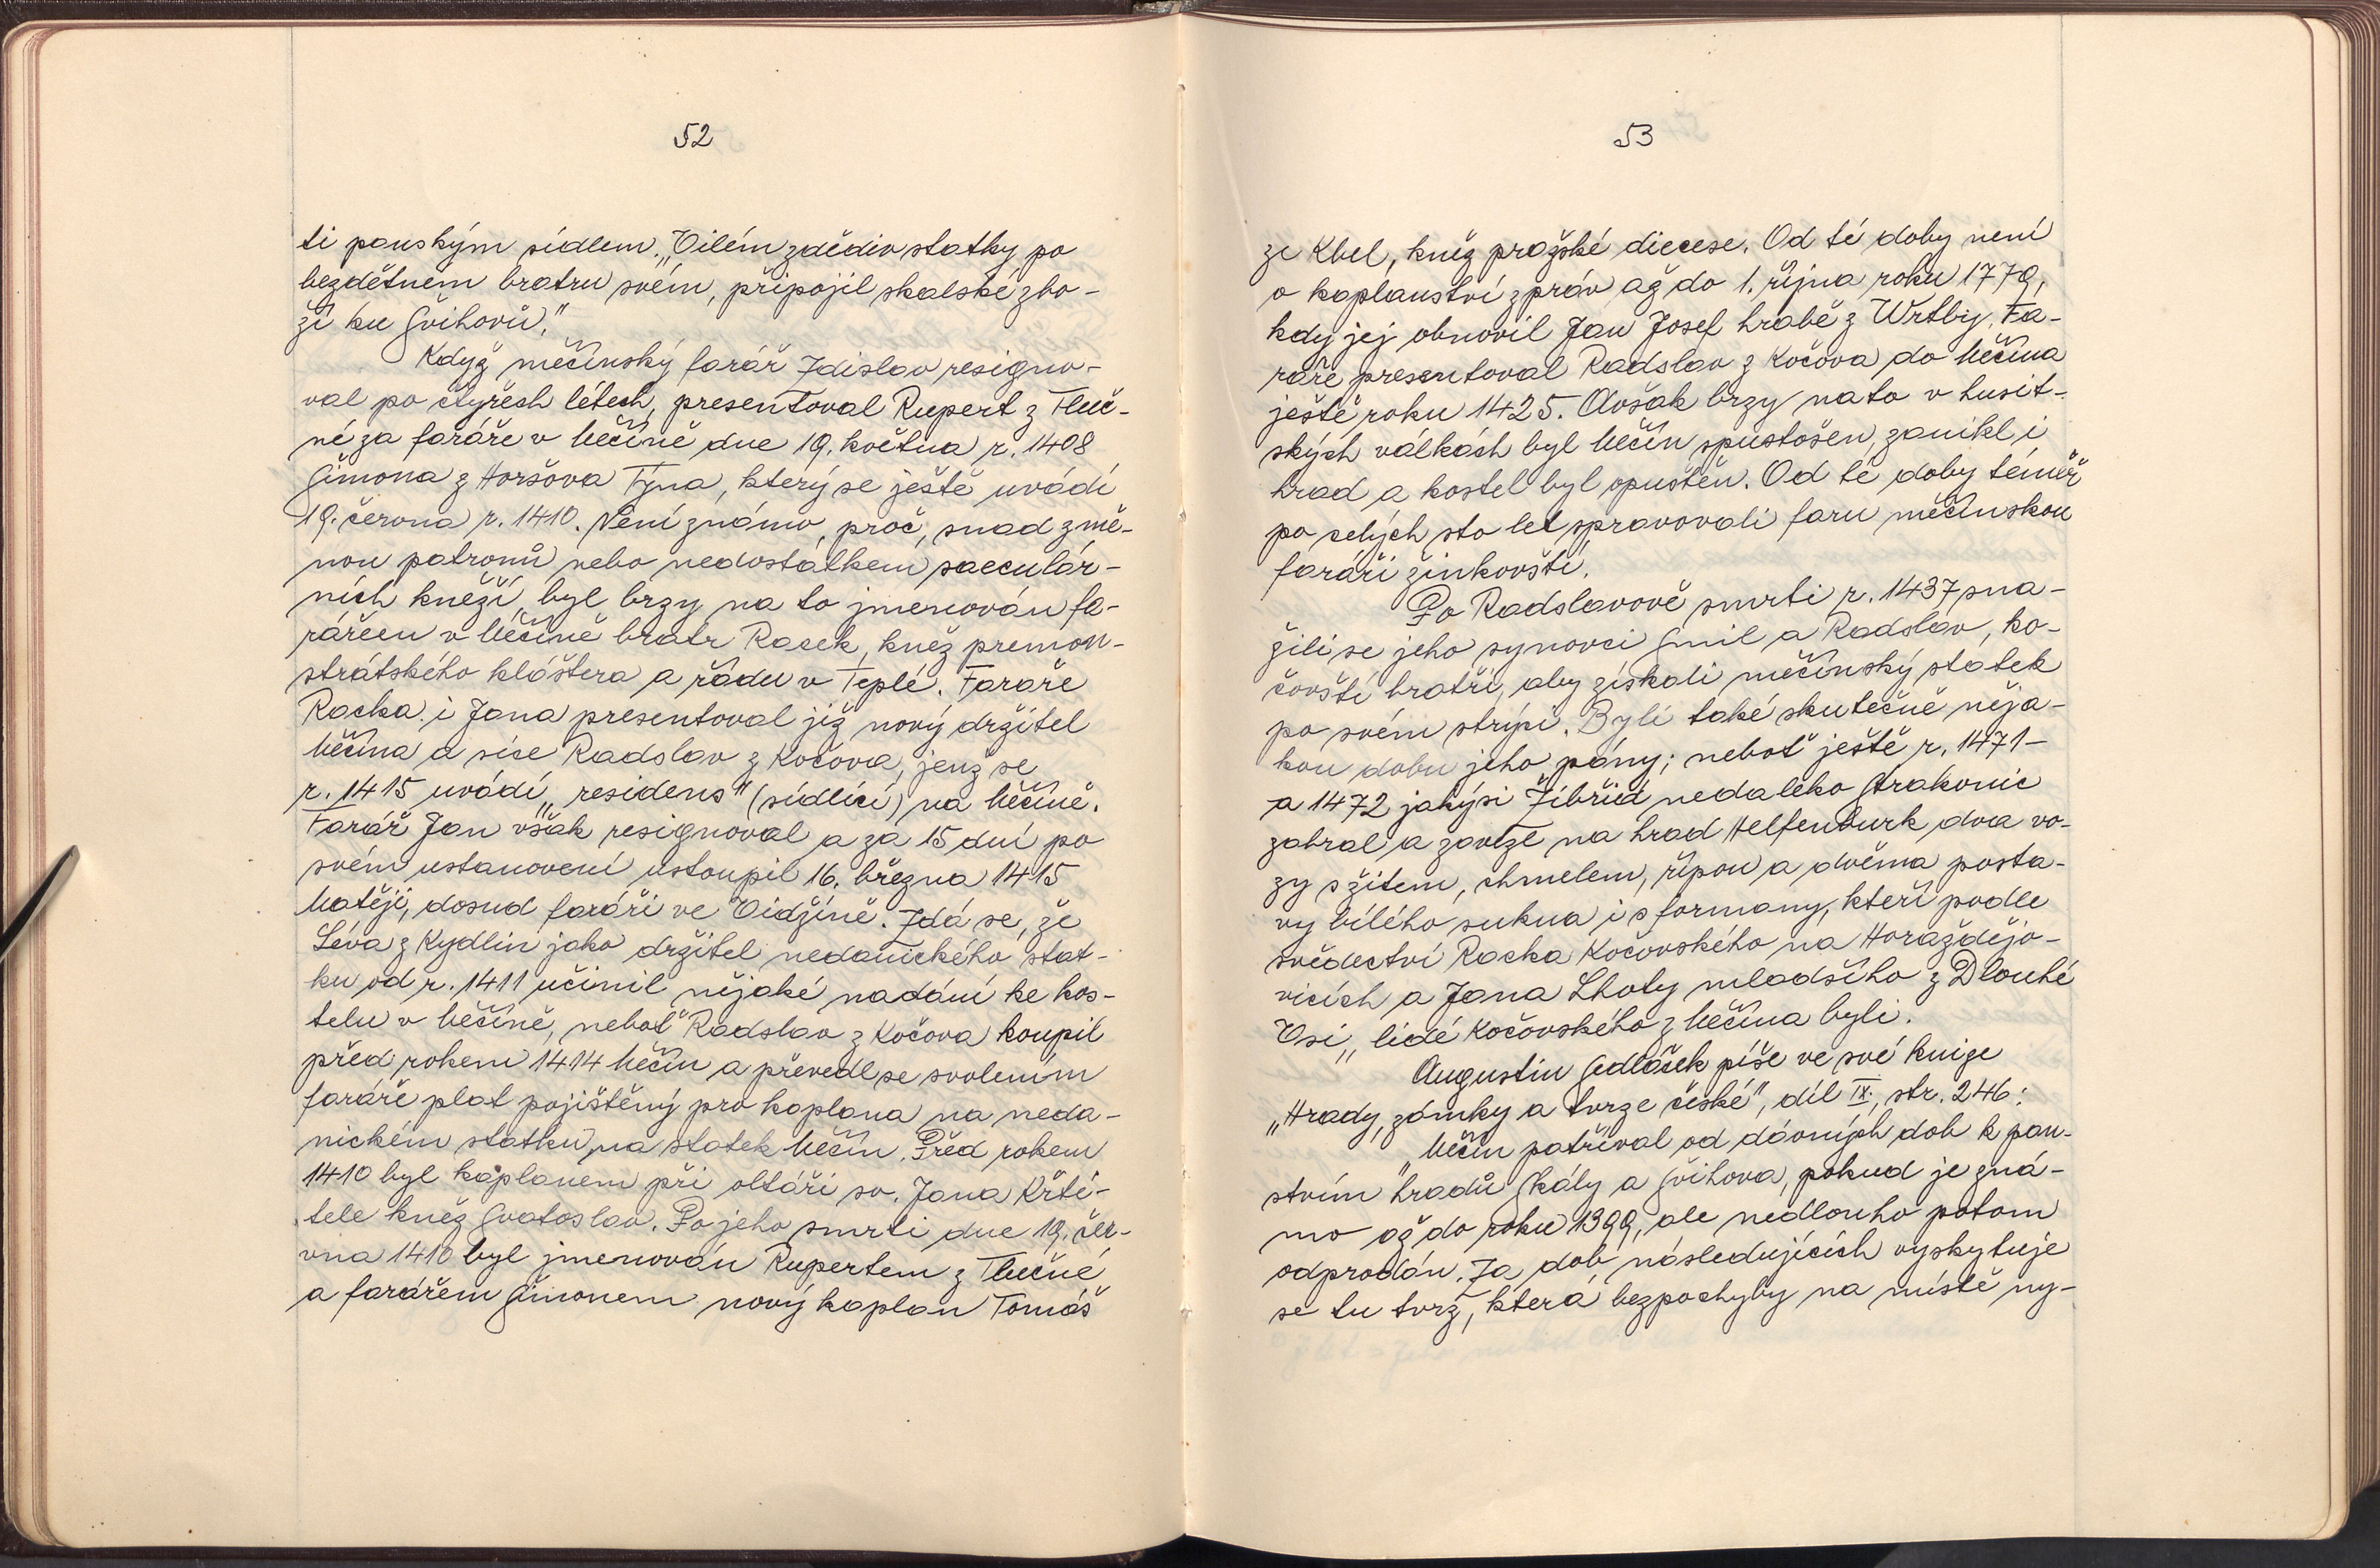 52
ti panským sídlem. „Vilém zdědiv statky po
bezdětném bratru svém, připojil skalské zbo-
ží ku Švihovu."
Když měčínský farář Zdislav resigno-
val po čtyřech létech, presentoval Rupert z Tluč-
né za faráře v Měčíně dne 19. května r. 1408
Šimona z Horšova Týna, který se ještě uvádí
19. června r. 1410. Není známo, proč, snad změ-
nou patronů nebo nedostatkem saeculár-
ních kněží, byl brzy na to jmenován fa-
rářem v Měčíně bratr Racek, kněz premon-
strátského kláštera a řádu v Teplé. Faráře
Racka i Jana presentoval již nový držitel
Měčína a sice Radslav z Kočova, jenž se
r. 1415 uvádí „residens" (sídlící) na Měčíně.
Farář Jan však resignoval a za 15 dní po
svém ustanovení ustoupil 16. března 1415
Matěji, dosud faráři ve Vidžíně. Zdá se, že
Léva z Kydlin jako držitel nedanického stat-
ku od r. 1411 učinil nějaké nadání ke kos-
telu v Měčíně, neboť Radslav z Kočova koupil
před rokem 1414 Měčín a převedl se svolením
faráře plat pojištěný pro kaplana na neda-
nickém statku na statek Měčín. Před rokem
1410 byl kaplanem při oltáři sv. Jana Křti-
tele kněz Svatoslav. Po jeho smrti dne 19. čer-
vna 1410 byl jmenován Rupertem z Tlučné
a farářem Šimonem nový kaplan Tomáš
53
ze Kbel, kněz pražské diecese. Od té doby není
o kaplanství zpráv až do 1. října roku 1779,
kdy jej obnovil Jan Josef hrabě z Wrtby. Fa-
ráře presentoval Radslav z Kočova do Měčína
ještě roku 1425. Avšak brzy nato v husit-
ských válkách byl Měčín spustošen, zanikl i
hrad a kostel byl opuštěn. Od té doby téměř
po celých sto let spravovali faru měčínskou
faráři žinkovští.
Po Radslavově smrti r. 1437 sna-
žili se jeho synovci Smil a Radslav, ko-
čovští bratři, aby získali měčínský statek
po svém strýci. Byli také skutečně něja-
kou dobu jeho pány; neboť ještě r. 1471-
a 1472 jakýsi Žibřid nedaleko Strakonic
zabral a zavezl na hrad Helfenburk dva vo-
zy s žitem, chmelem, řípou a dvěma posta-
vy bílého sukna i s formany, kteří podle
svědectví Racka Kočovského na Horažďějo-
vicích a Jana Lhoty mladšího z Dlouhé
Vsi „lidé Kočovského z Měčína byli.
Augustin Sedláček píše ve své knize
„Hrady, zámky a tvrze české", díl IX., str. 246:
„Měčín patříval od dávných dob k pan-
stvím hradů Skály a Švihova, pokud je zná-
mo až do roku 1399, ale nedlouho potom
odprodán. Za dob následujících vyskytuje
se tu tvrz, která bezpochyby na místě ny-